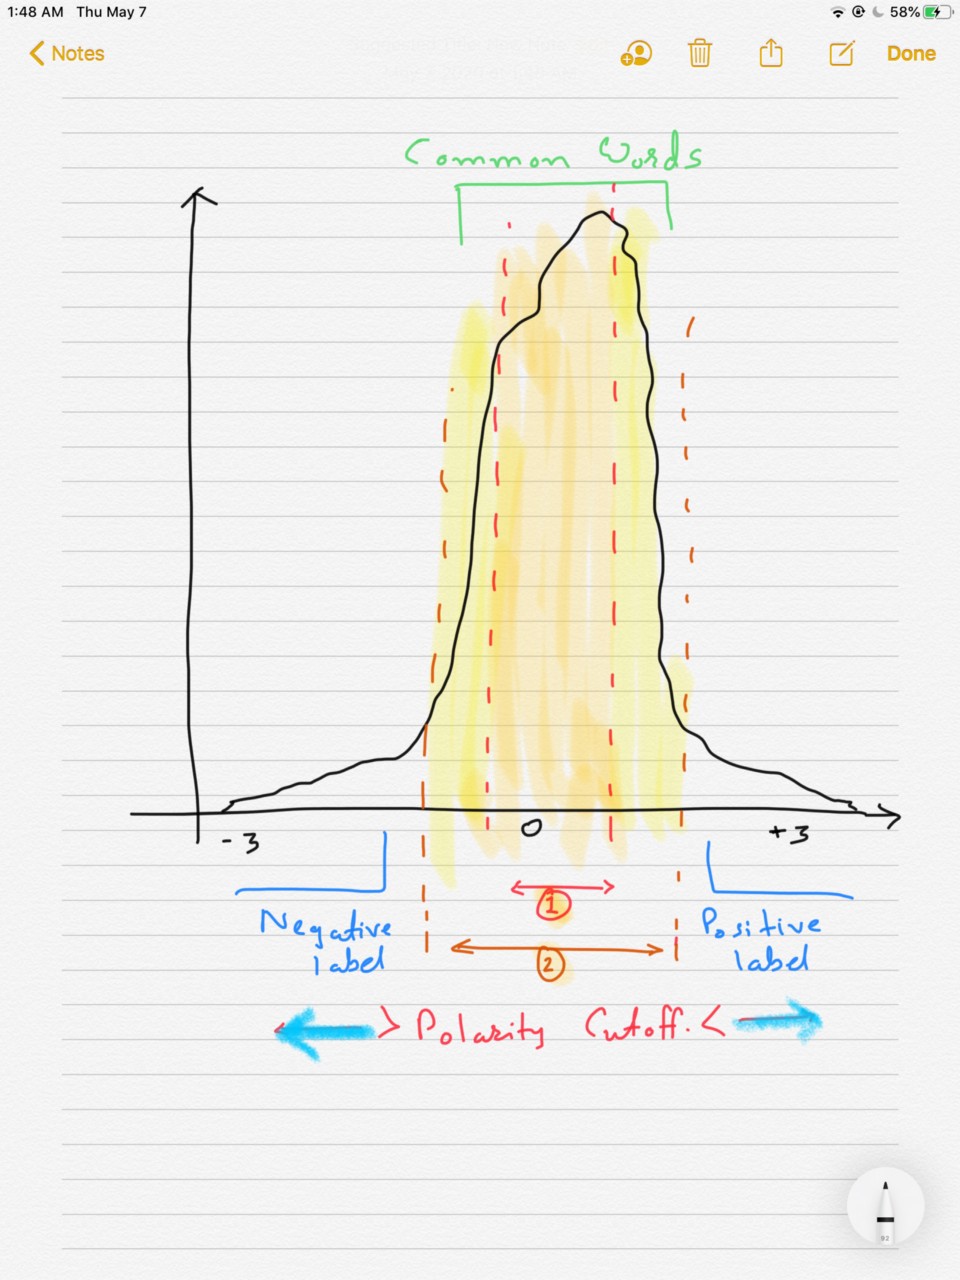 1:48 AM Thu May 7
58%
Notes
Done
Common Words
-3
0
+3
1
Negative
label
Positive
label
2
> Polarity Cutoff. <
82